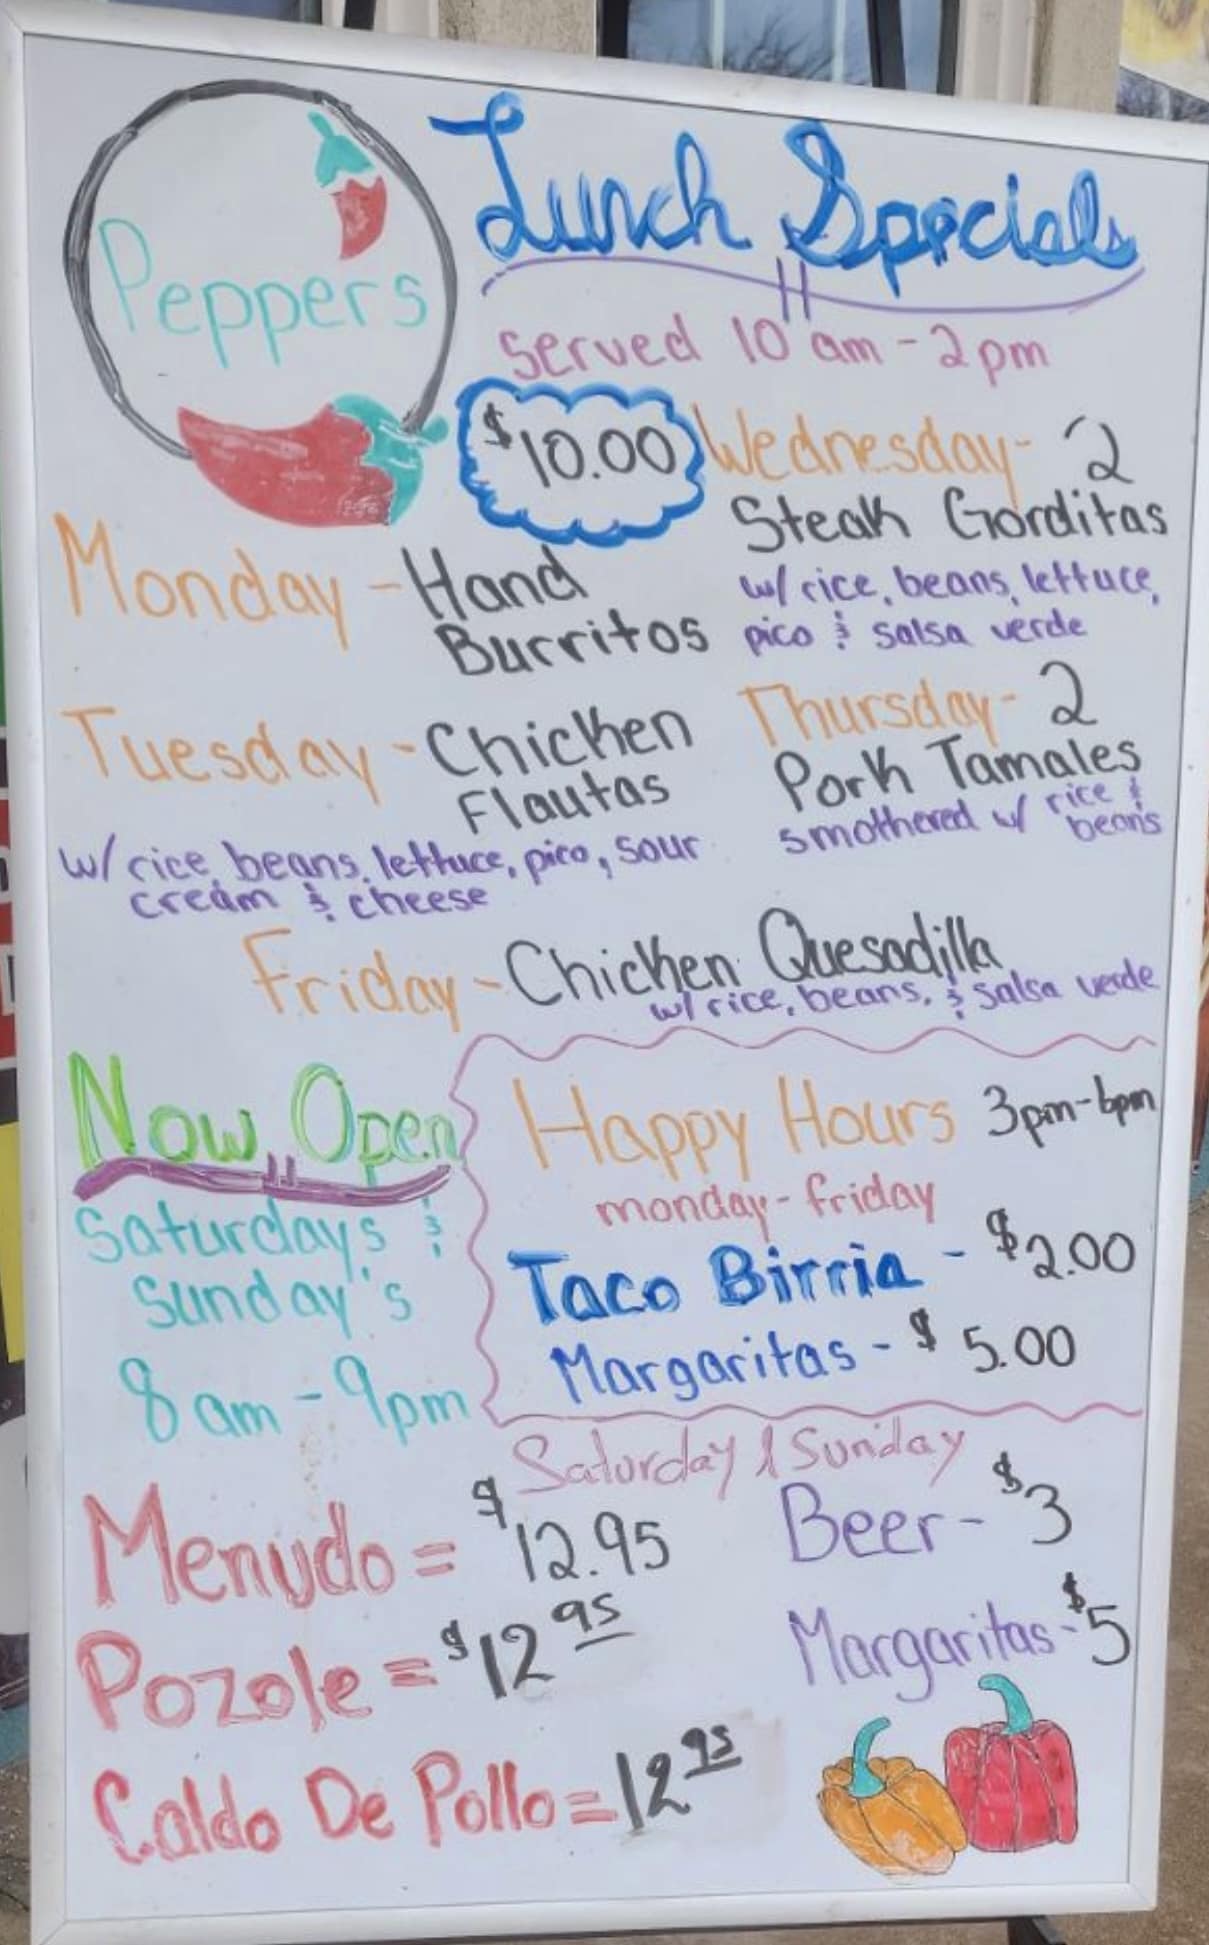 Peppers
Lunch Specials
served 10 am - 2pm
$10.00
Monday - Hand
Burritos
Tuesday - Chicken
Flautas
w/ rice, beans, lettuce, pico, sour
cream & cheese
Wednesday - 2
Steak Gorditas
w/ rice, beans, lettuce,
pico & salsa verde
Thursday - 2
Pork Tamales
smothered w/ rice &
beans
Friday - Chicken Quesadilla
w/ rice, beans, & salsa verde
Now Open
Saturdays &
Sunday's
8am - 9pm
Happy Hours 3pm-6pm
monday - friday
Taco Birria - $2.00
Margaritas - $5.00
Saturday & Sunday
Menudo = $12.95
Pozole = $12 95
Caldo De Pollo = 12 95
Beer - $3
Margaritas - $5